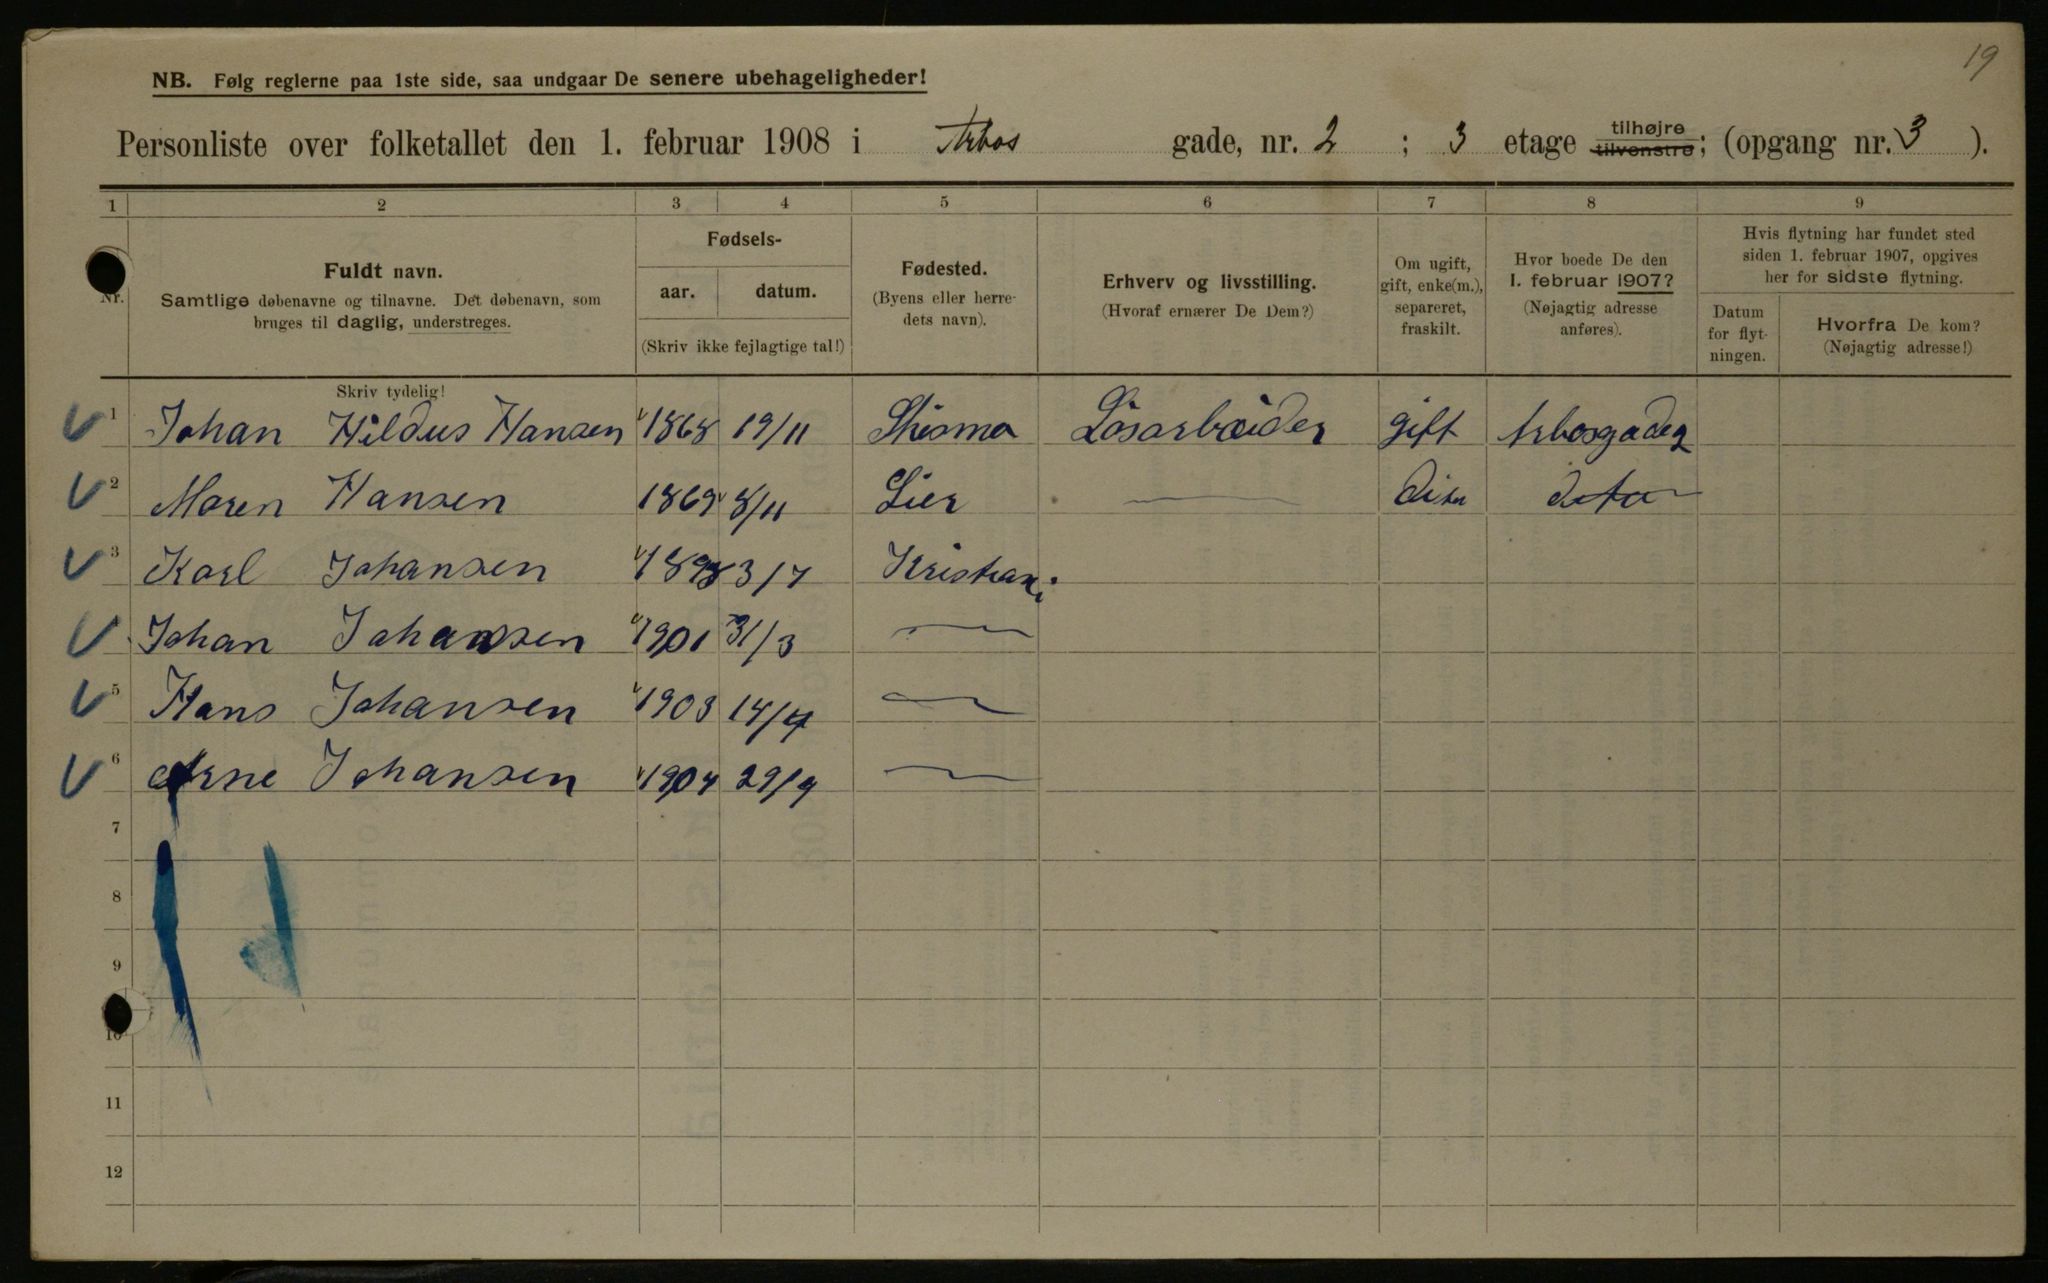 19
NB. Følg reglerne paa 1ste side, saa undgaar De senere ubehageligheder!
Personliste over folketallet den 1. februar 1908 i Arbos gade, nr. 2 ; 3 etage tilhøjre tilvenstre; (opgang nr. 3 ).
1 2 3 4 5 6 7 8 9
Nr.
Fuldt navn.
Samtlige døbenavne og tilnavne. Det døbenavn, som
bruges til daglig, understreges.
Fødsels-
aar. datum.
(Skriv ikke fejlagtige tal!)
Fødested.
(Byens eller herre-
dets navn).
Erhverv og livsstilling.
(Hvoraf ernærer De Dem?)
Om ugift,
gift, enke(m.),
separeret,
fraskilt.
Hvor boede De den
1. februar 1907?
(Nøjagtig adresse
anføres).
Hvis flytning har fundet sted
siden 1. februar 1907, opgives
her for sidste flytning.
Datum
for flyt-
ningen.
Hvorfra De kom?
(Nøjagtig adresse!)
Skriv tydelig!
1 Johan Hildus Hansen 1868 19/11 Løsarbeider gift Arbosgade 2
2 Maren Hansen 1869 8/11 Lier dito dito
3 Karl Johansen 3/7 Kristiani
Johan Johansen 1901 31/3
5 Hans Johansen 1903 14/4
6 Arne Johansen 1904 29/9
7
8
9
10
11
12